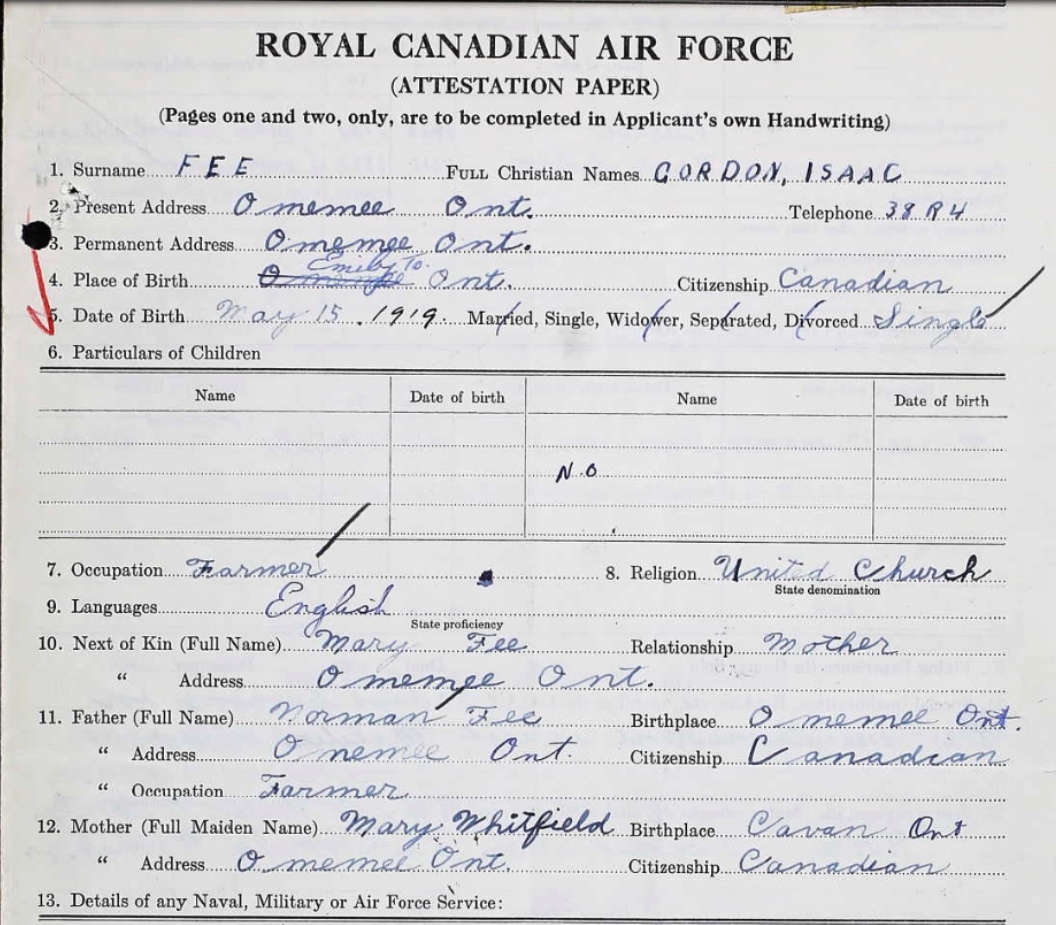 ROYAL CANADIAN AIR FORCE
(ATTESTATION PAPER)
(Pages one and two, only, are to be completed in Applicant's own Handwriting)
1. Surname FEE FULL Christian Names GORDON, ISAAC
2. Present Address Omemee Ont. Telephone 38 R 4
3. Permanent Address Omemee Ont.
Emily To.
4. Place of Birth Omemee Ont. Citizenship Canadian
5. Date of Birth May 15. 1919. Married, Single, Widower, Separated, Divorced Single
6. Particulars of Children
Name Date of birth Name Date of birth
N.O
7. Occupation Farmer 8. Religion United Church
State denomination
9. Languages English
State proficiency
10. Next of Kin (Full Name) Mary Fee Relationship Mother
" Address Omemee Ont.
11. Father (Full Name) Norman Fee Birthplace Omemee Ont.
" Address Omemee Ont. Citizenship Canadian
" Occupation Farmer.
12. Mother (Full Maiden Name) Mary Whitfield Birthplace Cavan Ont
" Address Omemee Ont. Citizenship Canadian
13. Details of any Naval, Military or Air Force Service: